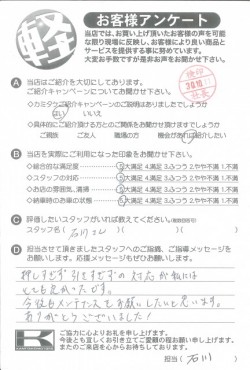 軽
お客様アンケート
当店では、お買い上げ頂いたお客様の声を可能
な限り現場に反映し、お客様により良い商品と
サービスを提供する事に努めています。
大変お手数ですが是非お声をお聞かせ下さい。
A 当店はご紹介を大切にしてあります。
ご紹介キャンペーンについてお聞かせ下さい。
◇カミタケご紹介キャンペーンの説明はありましたでしょうか
はい いいえ
◇具体的にご紹介頂ける方とのご関係をお聞かせ頂けますでしょうか
ご親戚 ご友人 職場の方 機会があれば紹介したい
B 当店を実際にご利用になった印象をお聞かせ下さい。
◇総合的な満足度 5大満足 4.満足 3.ふつう 2.やや不満 1.不満
◇スタッフの対応 5大満足 4.満足 3.ふつう 2.やや不満 1.不満
◇お店の雰囲気、清掃 5大満足 4.満足 3.ふつう 2.やや不満 1.不満
◇納車時のお車の状態 5大満足 4.満足 3.ふつう 2.やや不満 1.不満
C 評価したいスタッフがいれば教えてください。
スタッフ名（石川さん）
D 担当させて頂きましたスタッフへのご指摘、ご指導メッセージを
お願いします。応援メッセージもぜひお願いします。
押しすぎず引きすぎずの対応が私には
とても良かったです。
今後もメンテナンスをお願いしたいと思います。
ありがとうございました!
K
ご協力に心よりお礼を申し上げます。
今後とも宜しくお引き立てご愛顧の程お願い申し上げます。
またのご来店を心からお待ちしております。
担当（石川）